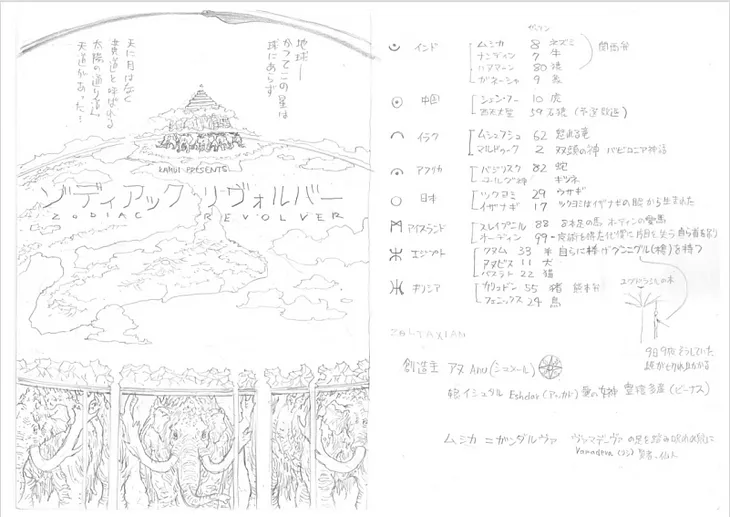 地球—
かつてこの星は
球にあらず
天に月はなく
黄道と呼ばれる
太陽の通り道
天道があった!
RAHUI PRESENTS
ゾディアック リヴォルバー
ZODIAC REVOLVER
インド
ムシカ 8 ネズミ
ナンディン 7 牛
ハヌマーン 80 猿
ガネーシャ 9 象
関西弁
中国
シェン・ノー 10 虎
西天大聖 59 石猿
イラク
ムシュフシュ 62 怒れる竜
マルドゥーク 2 双頭の神 バビロニア神話
アフリカ
バジリスク 82 蛇
キツネ
日本
ツクヨミ 29 ウサギ
イザナギ 17 ツクヨミはイザナギの眼から生まれた
アイスランド
スレイプニル 88 8本足の馬 オーディンの愛馬
オーディン 99
エジプト
クヌム 33 羊 自らに捧げグングニル(槍)を持つ
アヌビス 11 犬
バステト 22 猫
ギリシア
カリュドン 55 猪 熊本弁
フェニックス 24 鳥
ユグドラシルの木
9日9夜そうしていた
ZOLTAXIAN
創造主 アヌ Anu (シュメール)
娘 イシュタル Eshdar (アッカド) 愛の女神 豊穣多産 (ビーナス)
ムシカ = ガンダルヴァ ヴァマデーヴァの足を踏み
Vamadeva 賢者、仙人